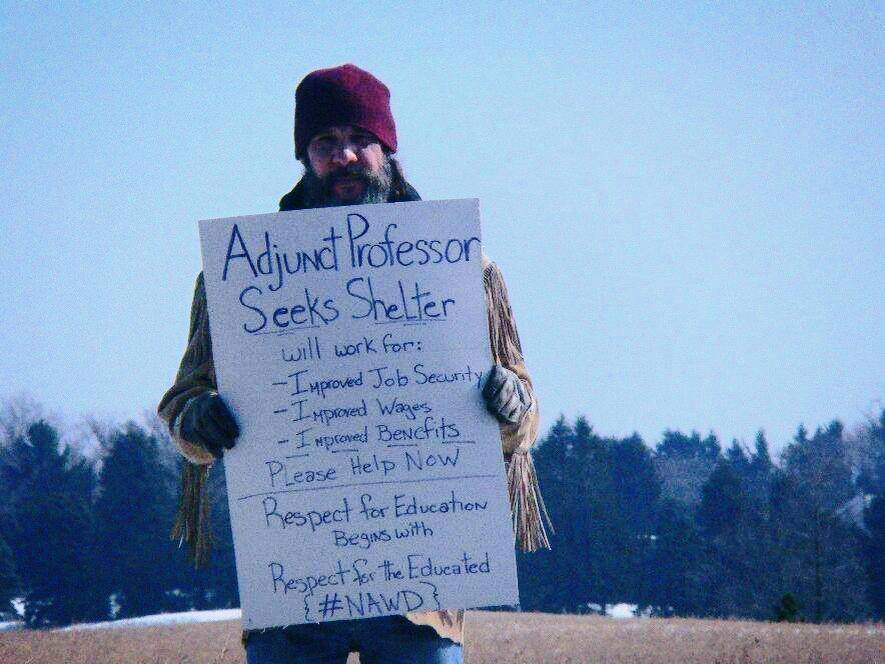 Adjunct Professor
Seeks Shelter
will work for:
- Improved Job Security
- Improved Wages
- Improved Benefits
Please Help Now
Respect for Education
Begins with
Respect for the Educated
{#NAWD}